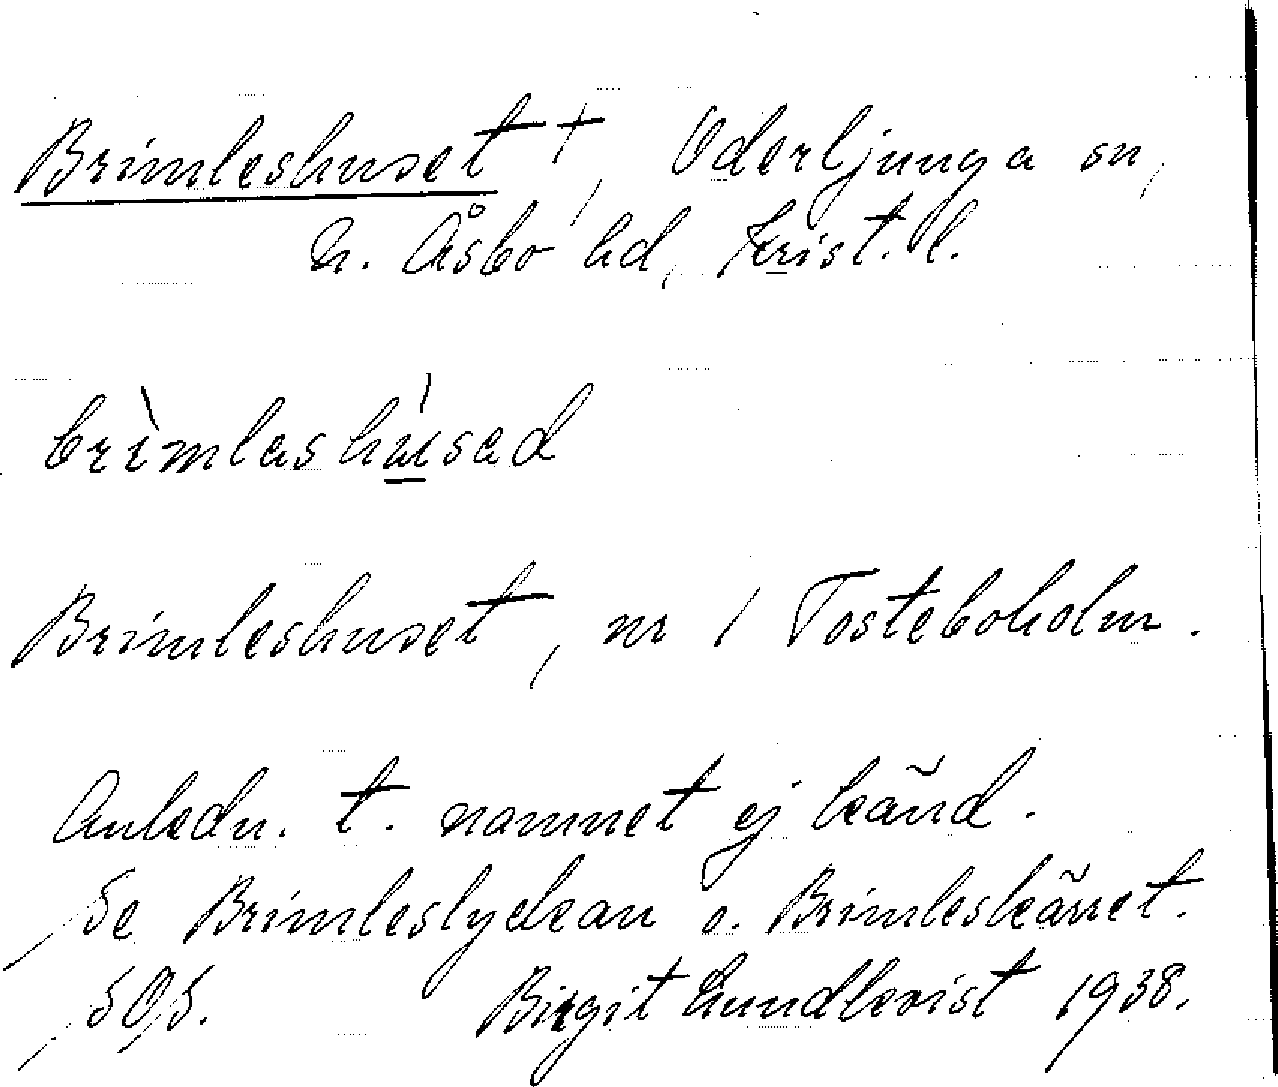 Brimleshuset †, Oderljunga sn,
N. Åsbo hd, Krist. l.
brìmlashúsad
Brimleshuset, nr 1 Tosteboholm.
Anledn. t. namnet ej känd.
Se Brimleslyckan o. Brimleskärret.
SOS. Birgit Lundkvist 1938.